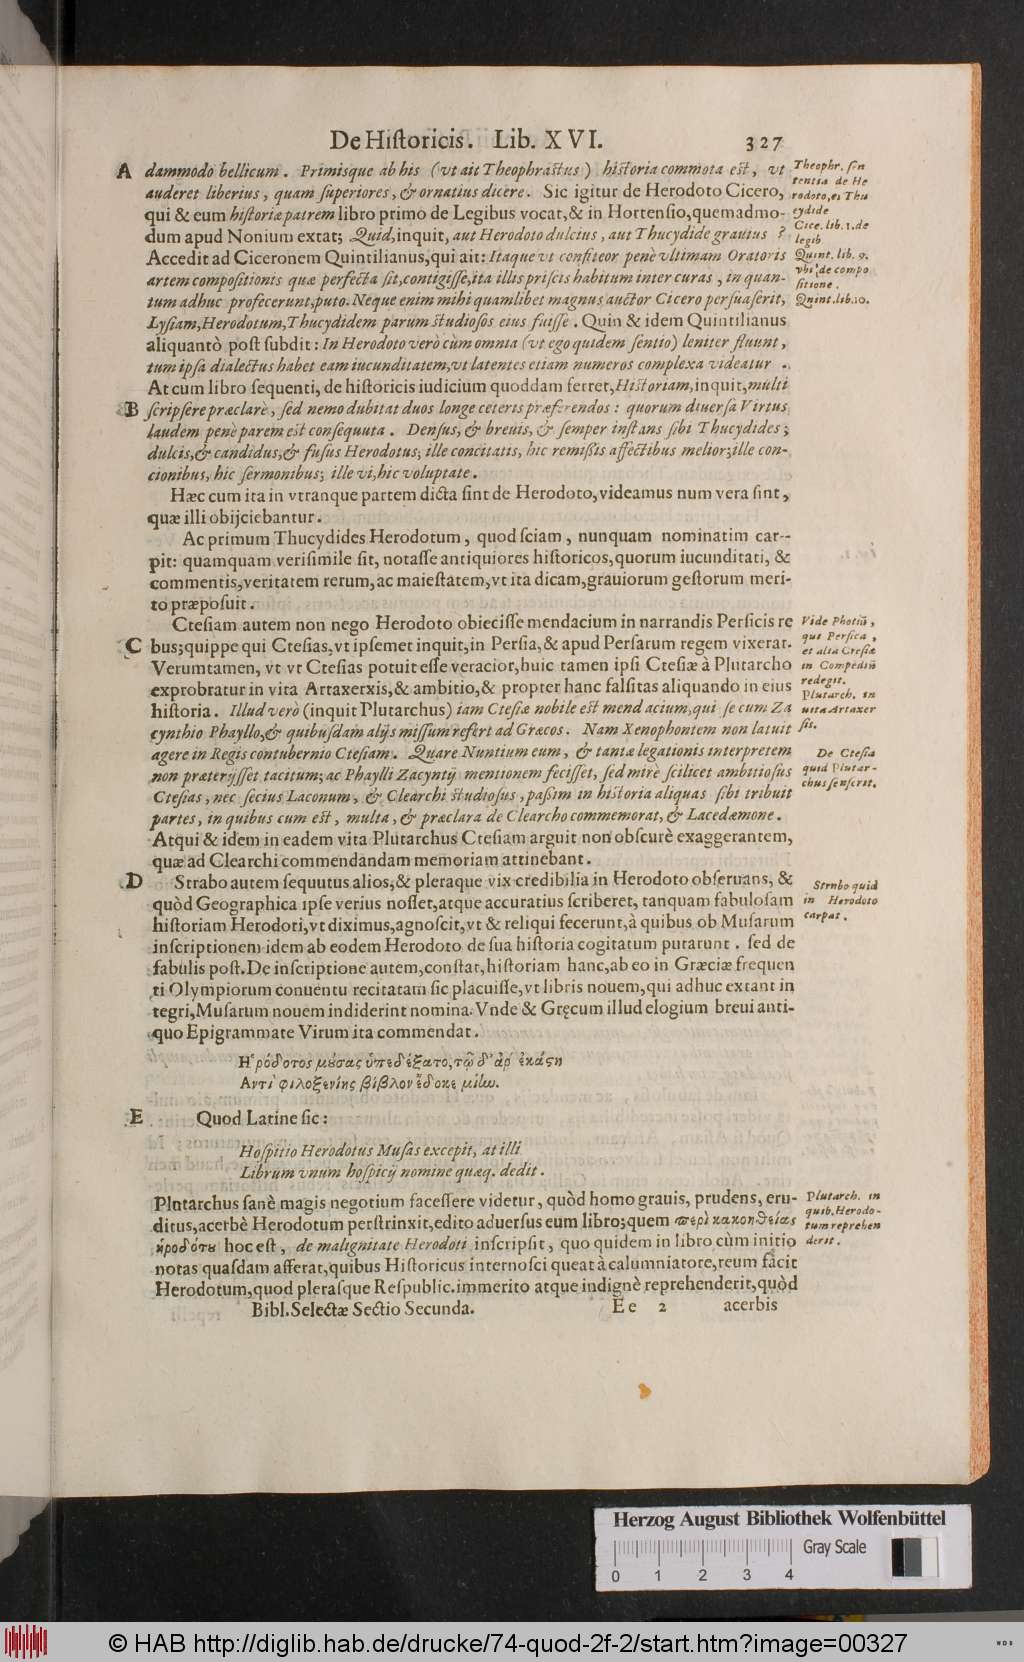 De Historicis. Lib. XVI. 327
A dammodo bellicum. Primisque ab his (vt ait Theophrastus) historia commota est, vt
auderet liberius, quam superiores, & ornatius dicere. Sic igitur de Herodoto Cicero,
qui & eum historiæ patrem libro primo de Legibus vocat, & in Hortensio, quemadmo-
dum apud Nonium extat; Quid, inquit, aut Herodoto dulcius, aut Thucydide grauius ?
Accedit ad Ciceronem Quintilianus, qui ait: Itaque vt confiteor penè vltimam Oratoris
artem compositionis quæ perfecta sit, contigisse, ita illis priscis habitum inter curas, in quan-
tum adhuc profecerunt, puto. Neque enim mihi quamlibet magnus auctor Cicero persuaserit,
Lysiam, Herodotum, Thucydidem parum studiosos eius fuisse. Quin & idem Quintilianus
aliquantò post subdit: In Herodoto verò cùm omnia (vt ego quidem sentio) leniter fluunt,
tum ipsa dialectus habet eam iucunditatem, vt latentes etiam numeros complexa videatur.
At cum libro sequenti, de historicis iudicium quoddam ferret, Historiam, inquit, multi
B scripsere præclarè, sed nemo dubitat duos longe ceteris præferendos: quorum diuersa Virtus
laudem penè parem est consequuta. Densus, & breuis, & semper instans sibi Thucydides;
dulcis, & candidus, & fusus Herodotus; ille concitatis, hic remissis affectibus melior; ille con-
cionibus, hic sermonibus; ille vi, hic voluptate.
Hæc cum ita in vtranque partem dicta sint de Herodoto, videamus num vera sint,
quæ illi obijciebantur.
Ac primum Thucydides Herodotum, quod sciam, nunquam nominatim car-
pit: quamquam verisimile sit, notasse antiquiores historicos, quorum iucunditati, &
commentis, veritatem rerum, ac maiestatem, vt ita dicam, grauiorum gestorum meri-
to præposuit.
Ctesiam autem non nego Herodoto obiecisse mendacium in narrandis Persicis re
C bus; quippe qui Ctesias, vt ipsemet inquit, in Persia, & apud Persarum regem vixerat.
Verumtamen, vt vt Ctesias potuit esse veracior, huic tamen ipsi Ctesiæ à Plutarcho
exprobratur in vita Artaxerxis, & ambitio, & propter hanc falsitas aliquando in eius
historia. Illud verò (inquit Plutarchus) iam Ctesiæ nobile est mendacium, qui se cum Za
cynthio Phayllo, & quibusdam alijs missum refert ad Græcos. Nam Xenophontem non latuit
agere in Regis contubernio Ctesiam. Quare Nuntium eum, & tantæ legationis interpretem
non præterijsset tacitum; ac Phaylli Zacyntij mentionem fecisset, sed mirè scilicet ambitiosus
Ctesias, nec secius Laconum, & Clearchi studiosus, passim in historia aliquas sibi tribuit
partes, in quibus cum est, multa, & præclara de Clearcho commemorat, & Lacedæmone.
Atqui & idem in eadem vita Plutarchus Ctesiam arguit non obscurè exaggerantem,
quæ ad Clearchi commendandam memoriam attinebant.
D Strabo autem sequutus alios, & pleraque vix credibilia in Herodoto obseruans, &
quòd Geographica ipse verius nosset, atque accuratius scriberet, tanquam fabulosam
historiam Herodori, vt diximus, agnoscit, vt & reliqui fecerunt, à quibus ob Musarum
inscriptionem idem ab eodem Herodoto de sua historia cogitatum putarunt. sed de
fabulis post. De inscriptione autem, constat, historiam hanc, ab eo in Græciæ frequen
ti Olympiorum conuentu recitatam sic placuisse, vt libris nouem, qui adhuc extant in
tegri, Musarum nouem indiderint nomina. Vnde & Gręcum illud elogium breui anti-
quo Epigrammate Virum ita commendat.
Ηʽρόδοτος μούσας ὑπεδέξατο, τῷ δ' ἀρ ἑκάστη
Αντὶ φιλοξενίης βίβλον ἔδοκε μίαν.
E Quod Latine sic:
Hospitio Herodotus Musas excepit, at illi
Librum vnum hospicij nomine quæq. dedit.
Plutarchus sanè magis negotium facessere videtur, quòd homo grauis, prudens, eru-
ditus, acerbè Herodotum perstrinxit, edito aduersus eum libro; quem περὶ κακοηθείας
ἡροδότου hoc est, de malignitate Herodoti inscripsit, quo quidem in libro cùm initio
notas quasdam afferat, quibus Historicus internosci queat à calumniatore, reum facit
Herodotum, quod plerasque Respublic. immerito atque indignè reprehenderit, quòd
Bibl. Selectæ Sectio Secunda. Ee 2 acerbis
Theophr. sen
tentia de He
rodoto, et Thu
cydide
Cice. lib. 1. de
legib
Quint. lib. 9.
vbi de compo
sitione.
Quint. lib. 10.
Vide Photiũ,
qui Persica,
et alia Ctesiæ
in Compediũ
redegit.
Plutarch. in
uita Artaxer
sis.
De Ctesia
quid Plutar-
chus senserit.
Strabo quid
in Herodoto
carpat.
Plutarch. in
quib. Herodo-
tum reprehen
derit.
Herzog August Bibliothek Wolfenbüttel
Gray Scale
0 1 2 3 4
© HAB http://diglib.hab.de/drucke/74-quod-2f-2/start.htm?image=00327